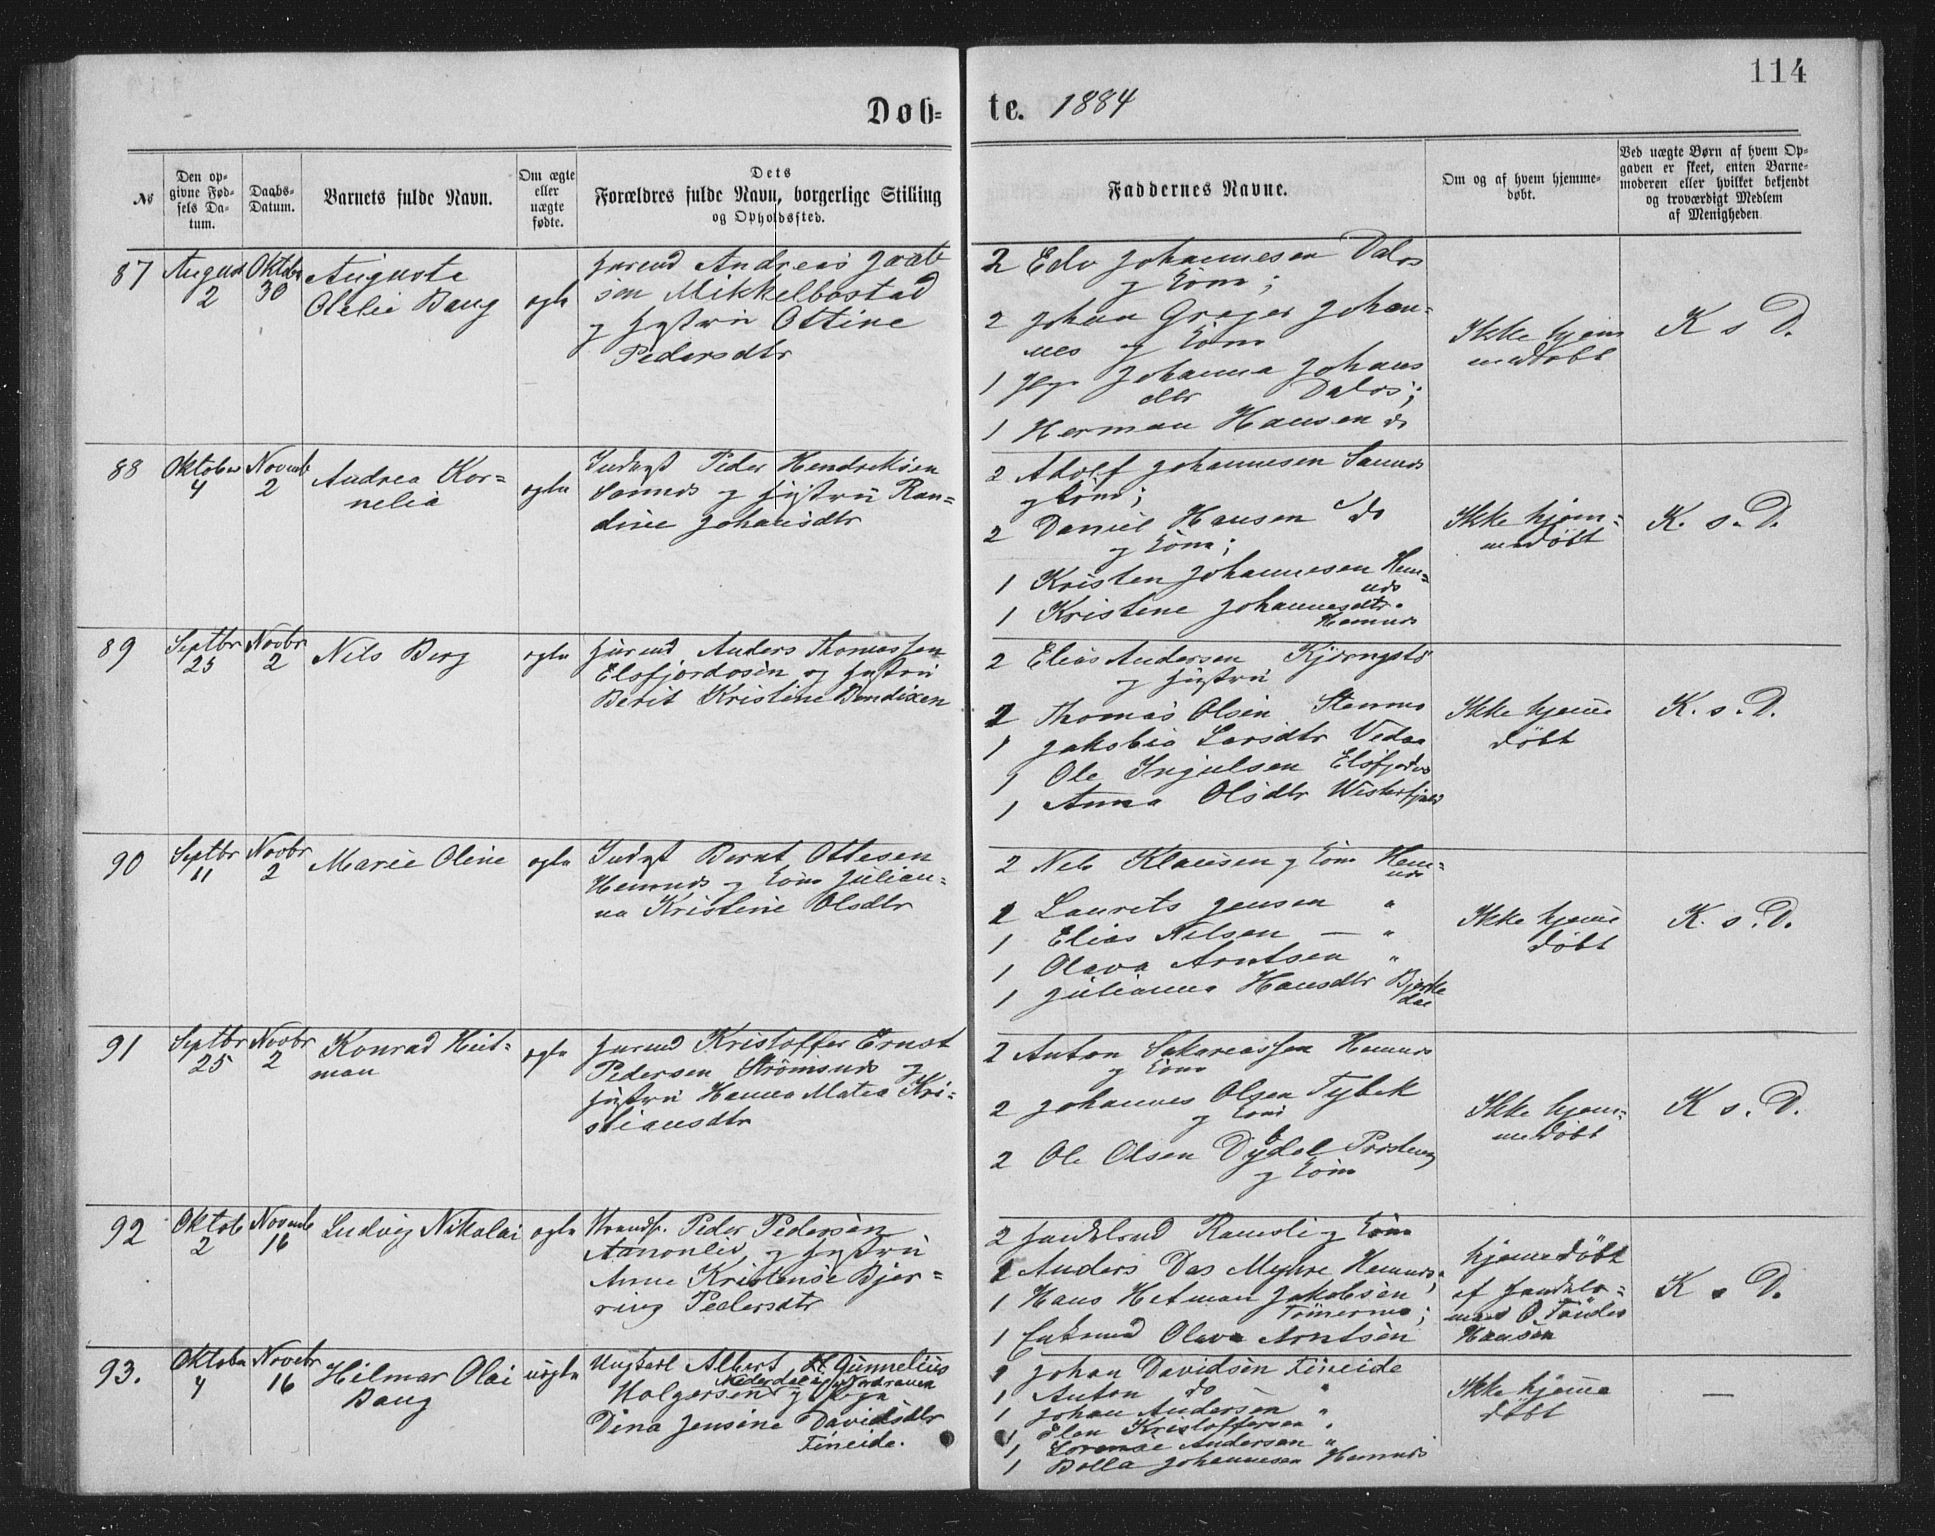 114
Døb= te. 1884
No
Den op-
givne Fød-
sels Da-
tum.
Daabs-
Datum.
Barnets fulde Navn.
Om ægte
eller
uægte
fødte.
Dets
Forældres fulde Navn, borgerlige Stilling
og Opholdssted.
Faddernes Navne.
Om og af hvem hjemme-
døbt.
Ved uægte Børn af hvem Op-
gaven er skeet, enten Barne-
moderen eller hvilket bekjendt
og troværdigt Medlem
af Menigheden.
87
August
2
Oktobr
30
Auguste
Olelie Baug
ægte
Andreas
sen Mikkelbostad
og Hustru Ottine
Pedersdtr
2 Edv Johannesen Dalos
og Kone;
2 Johan Greger Johan-
nes og Kone
1 Johanna Johans
dtr Dalos;
1 Herman Hansen do
Ikke hjem
medøbt
K s D.
88
Oktober
4
Novemb
2
Andrea Kor=
nelia
ægte
Peder Hendriksen
og Hustru Ran=
dine Johansdtr
2 Adolf Johannesen
og Kone;
2 Daniel Hansen do
og Kone;
1 Kristen Johannesen Hem=
nes
1 Kristine Johannesdtr.
Hemnes
Ikke hjem=
medøbt
K. s. D.
89
Septbr
25
Novbr
2
Nils Berg
ægte
Anders Thomassen
Elsfjordosen og Hustru
Berit Kristine Bendixen
2 Elias Andersen
og Hustru
1 Thomas Olsen Stenmo
1 Jakobia Larsdtr Vedaa
1 Ole Ingulsen Elsfjorden
1 Anna Olsdtr
Ikke hjeme
døbt
K. s. D.
90
Septbr
11
Novbr
2
Marie Oline
ægte
Bernt Ottesen
Hemnes og Kone Julian=
na Kristine Olsdtr
2 Nils Klausen og Kone Hem=
nes
1 Laurets Jensen "
1 Elias Nilsen — "
1 Olava Arntsen "
1 Julianna Hansdtr Bjerke
dal
Ikke hjeme
døbt
K. s. D.
91
Septbr
25
Novbr
2
Konrad Heit=
man
ægte
Kristoffer Ernst
Pedersen Strømsnes og
Hustru Hanna Matea Kri=
stiansdtr
2 Anton Sakariassen Hemnes
og Kone
2 Johannes Olsen Tybek
og Kone
2 Ole Olsen
og Kone
Ikke hjem=
medøbt
K s. D.
92
Oktob
2
Novemb
16
Ludvig Nikolai
ægte
Strandf. Peder Pedersen
og Hustru
Anne Kristense Bjer=
ring Pedersdtr
2 og Kone
1 Anders Das Myhre Hemnes;
1 Hans Hetman Jakobsen
1 Olava Arntsen
hjemmedøbt
af
Hansen
K s D.
93.
Oktobe
4
Novebr
16
Hilmar Olai
Baug
uægte
Ungkarl Albert Gunnelius
Holgersen og Pige
Dina Jensine Davidsdtr
Fineide.
1 Johan Davidsen Fineide
1 Anton do "
1 Johan Andersen "
1 Elen Kristoffersen "
1 Lorense Andersen "
1 Bolla Johannesen Hemnes
Ikke hjeme
døbt
—